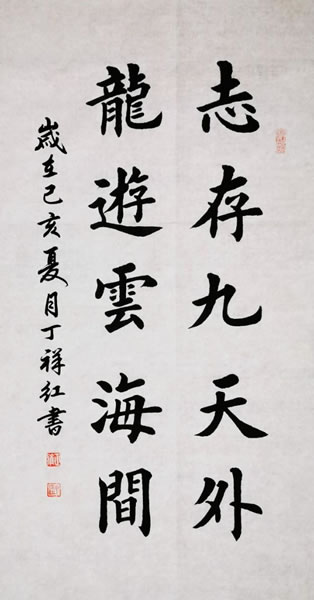 志存九天外
龍遊雲海間
歲在己亥夏月丁祥红書